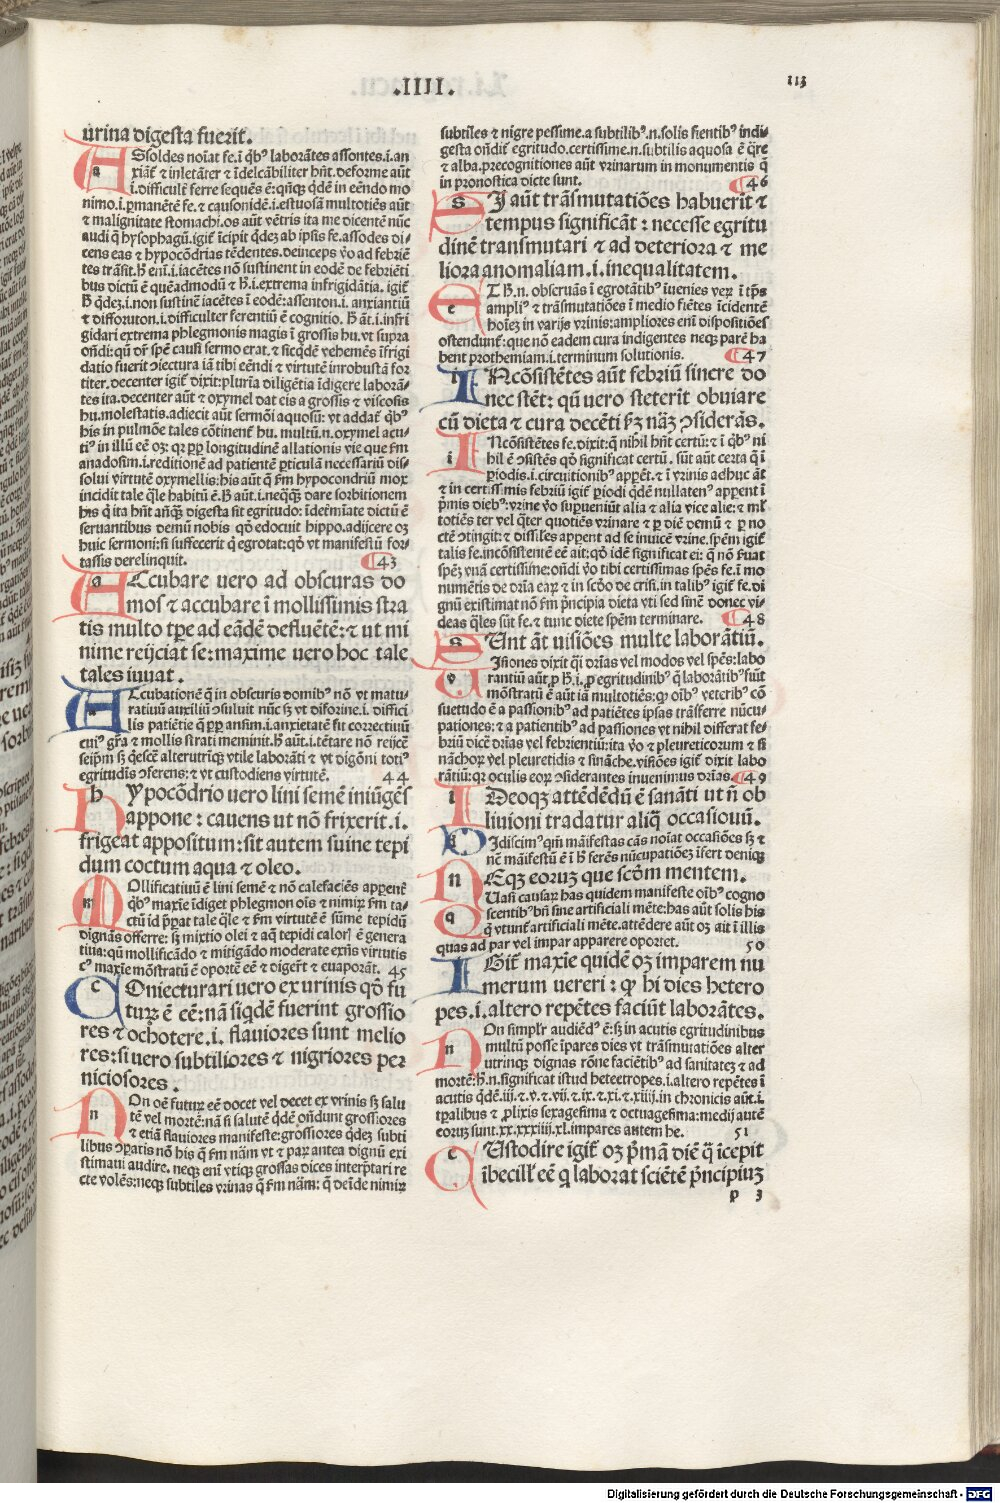 .IIII.
113
urina digesta fuerit.
ASsoldes noīat fe.ī q̄bꝰ laborātes assontes.i.an
xiāt̄ ⁊ inletāter ⁊ īdelcābiliter hn̄t. deforme aūt
i.difficulē ferre sequēs ē:qn̄qꝫ qdē in eēndo mo
nimo.i.ꝑmanētē fe.⁊ causonidē.i.estuosā multotiēs aūt
⁊ malignitate stomachi.os aūt vētris ita me dicentē nūc
audi q̄ hysophagū.igit̄ īcipit qdeꝫ ab ipsis fe.assodes di
cens eas ⁊ hypocōdrias tēdentes.deinceps v̄o ad febriē
tes trāsit.
bus dictū ē quēadmodū ⁊
⁊ difforuton.i.difficulter ferentiū ē cognitio.
gidari extrema phlegmonis magis ī grossis hu.vt supra
datio fuerit ↄiectura iā tibi cēndi ⁊ virtutē inrobustā for
titer.decenter igit̄ dixit:plurīa diligētia īdigere laborā
tes ita.decenter aūt ⁊ oxymel dat eis a grossis ⁊ viscosis
hu.molestatis.adiecit aūt sermōi aquosū:vt addat̄ q̄bꝰ
his in pulmōe tales cōtinent̄ hu. multū.n.oxymel acu
anadosim.i.reditionē ad patientē ꝑticulā necessariū dis
solui virtutē oxymellis:his aūt q̄ fm̄ hypocondriū mox
incidit tale
his q̄ ita hn̄t
seruantibus demū nobis qō edocuit hippo.adijcere oꝫ
huic sermoni:si suffecerit q̄ egrotat:qō vt manifestū for
tassis derelinquit. 43
ACcubare uero ad obscuras do
mos ⁊ accubare ī mollissimis stra
tis multo tꝑe ad eādē defluētē:⁊ ut mi
nime reijciat se:maxime uero hoc tale
tales iuuat.
ACcubationē q̄ in obscuris domibꝰ nō vt matu
ratiuū auxiliū ↄsuluit nūc sꝫ vt diforine.i. diffici
lis patiētie q̄ ꝑꝑ ansim.i.anxietatē sit correctiuū
cuiꝰ gr̄a ⁊ mollis strati meminit.
seip̄m sꝫ q̄escē alterutriqꝫ vtile laborāti ⁊ vt digōni totiꝰ
egritudīs ↄferens:⁊ vt custodiens virtutē. 44
HYpocōdrio uero lini semē iniūgēs
appone: cauens ut nō frixerit.i.
frigeat appositum:sit autem suine tepi
dum coctum aqua ⁊ oleo.
MOllificatiuū ē lini semē ⁊ nō calefaciēs apparent̄
q̄bꝰ maxīe īdiget phlegmon oīs ⁊ nimiꝝ fm̄ ta
ctū id p̄ꝑat tale qle ⁊ fm̄ virtutē ē sūme tepidū
dignās offerre: sꝫ mixtio olei ⁊ aq̄ tepidi caloꝛꝭ ē genera
tiua:qū mollificādo ⁊ mitigādo moderate exn̄s virtutis
cꝰ maxīe mōstratū ē oportē eē ⁊ digerr̄ ⁊ euaporāt̄. 45
COniecturari uero ex urinis qō fu
turꝫ ē eē:nā siqdē fuerint grossio
res ⁊ ochotere.i. flauiores sunt melio
res:si uero subtiliores ⁊ nigriores per
niciosores.
NOn oē futurꝫ eē docet vel decet ex vrinis sꝫ salu
tē vel mortē:nā si salutē qdē on̄dunt grossiores
⁊ etiā flauiores manifeste:grossiores qdeꝫ subti
libus ↄꝑatis nō his q̄ fm̄ nām vt ⁊ par antea dignū exi
stimaui audire. neqꝫ enī vtiqꝫ grossas dices interp̄tari re
cte volēs:neqꝫ subtiles vrinas q̄ fm̄ nām: q̄ deīde nimiꝝ
subtiles ⁊ nigre pessime.a subtilibꝰ.n.solis fientibꝰ indi
gesta on̄dit̄ egritudo.certissime.n.subtilis aquosa ē q̄re
⁊ alba.precognitiones aūt vrinarum in monumentis q̄
in pronostica dicte sunt. 46
SI aūt trāsmutatiōes habuerit ⁊
tempus significāt: necesse egritu
dinē transmutari ⁊ ad deteriora ⁊ me
liora anomaliam.i.inequalitatem.
ET .n. observās ī egrotātibꝰ īuenies veꝝ ī tp̄s
ampliꝰ ⁊ trāsmutatiōes ī medio fiētes īcidentē
hoīeꝫ in varijs vrinis:ampliores enī dispositiōes
ostendunt̄:que nō eadem cura indigentes neqꝫ parē ha
bent prothemiam.i.terminum solutionis. 47
INcōsistētes aūt febriū sincre do
nec stēt: qū uero steterit obuiare
cū dieta ⁊ cura decēti ꝑꝫ nāꝫ ↄsiderās.
INcōsistentes fe.dixit:q̄ nihil hn̄t certū:⁊ ī q̄bꝰ ni
hil ē ↄsistēs qō significat certū. sūt aūt certa q̄ ī
ꝑiodis.i.circuitionibꝰ appēt̄.⁊ ī vrinis adhuc āt̄
⁊ in certissimis febriū igit̄ ꝑiodi qdē nullatenꝰ apparent ī
p̄mis diebꝰ:vrine v̄o supueniūt alia ⁊ alia vice alie:⁊ ml̄
totiēs ter vel q̄ter quotiēs vrinare ⁊ ꝑ diē demū ⁊ ꝑ no
ctē ↄtingit:⁊ dissiles apparent ad se inuicē vrine.spēm igit̄
talis fe.incōsistentē eē ait:qō idē significat ei: q̄ nō fiuat
speꝫ vnā certissime:on̄di v̄o tibi certissimas spēs fe.ī mo
numētis de dr̄ia eaꝝ ⁊ in scḋo de crisi.in talibꝰ igit̄ fe.di
gnū existimat nō fm̄ p̄ncipia dieta vti sed sinē donec vi
deas q̄les sūt fe.⁊ tunc diete spēm terminare. 48
SUnt āt̄ uisiōes multe laborātiū.
VIsiones dixit q̄ dr̄ias vel modos vel spēs:labo
rantiū aūt
mōstratū ē aūt iā multotiēs:qꝫ oībꝰ veteribꝰ cō
suetudo ē a passionibꝰ ad patiētes ipsas trāsferre nūcu
pationes:⁊ a patientibꝰ ad passiones vt nihil differat fe
briū dicē dr̄ias vel febrientiū:ita v̄o ⁊ pleureticorum ⁊ si
nāchoꝝ vel pleuretidis ⁊ sināche.visiōes igit̄ dixit labo
rātiū:qꝛ oculis eoꝝ ↄsiderantes inuenimus dr̄ias. 49
IDeoqꝫ attēdēdū ē sanāti ut n̄ ob
liuioni tradatur aliq̄ occasiouū.
DIdiscimꝰ qm̄ māifestas cās noīat occasiōes sꝫ ⁊
nē māifestū ē ī ferēs nūcupatiōeꝫ īsert deniqꝫ
NEqꝫ eoruꝫ que scōm mentem.
QUasi causaꝝ has quidem manifeste oībꝰ cogno
scentibꝰ hn̄ sine artificiali mēte:has aūt solis his
q̄ vtunt̄ artificiali mēte.attēdere aūt oꝫ ait ī illis
quas ad par vel impar apparere oportet. 50
IGit̄ maxie quidē oꝫ imparem nu
merum uereri: qꝫ hi dies hetero
pes.i.altero repētes faciūt laborātes.
NOn simplr̄ audiēdꝰ ē:sꝫ in acutis egritudinibus
multū posse īpares dies vt trāsmutatiōes alter
utrinqꝫ dignas rōne faciētibꝰ ad sanitateꝫ ⁊ ad
mortē:.n.significat istud heteetropes.i.altero repētes ī
acutis qdē.iij.⁊.v.⁊.vij.⁊.ix.⁊.xi.⁊.xiiij.in chronicis aūt.i.
tꝑalibus ⁊ ꝓlixis sexagesima ⁊ octuagesima:medij autē
eoruꝫ sunt.xx.xxxiiij.xl.impares autem he. 51
CUstodire igit̄ oꝫ p̄mā diē q̄ īcepit
ībecill̄ eē q̄ laborat sciētē p̄ncipiuꝫ
p 3
Digitalisierung gefördert durch die Deutsche Forschungsgemeinschaft - DFG